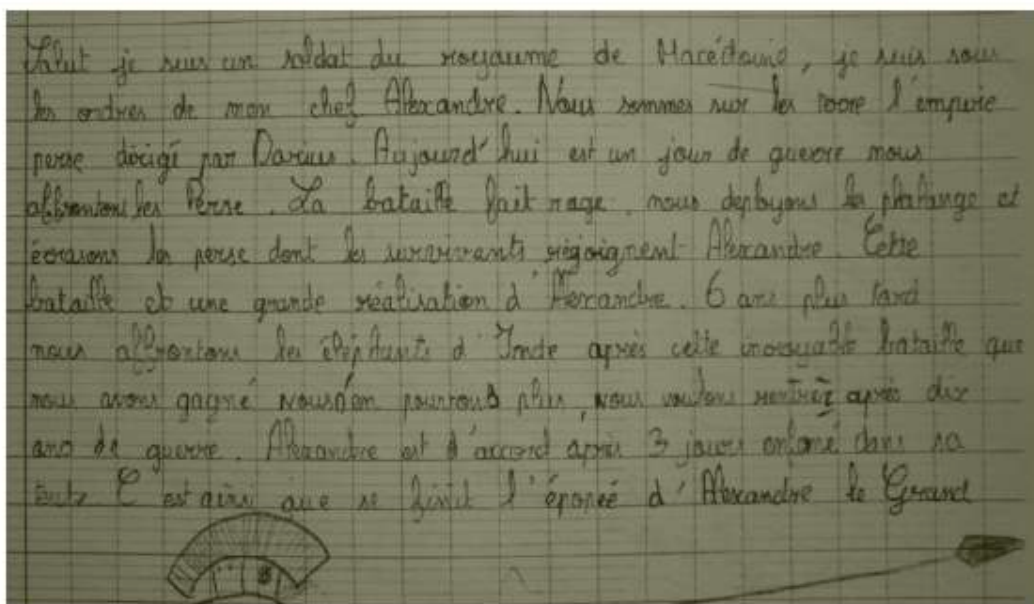 Salut je suis un soldat du royaume de Macédoine, je suis sous
les ordres de mon chef Alexandre. Nous sommes sur les terre l'empire
perse dirigé par Darius. Aujourd'hui est un jour de guerre nous
affrontons les Perse. La bataille fait rage, nous deployons la phalange et
écrasons les perse dont les survivants rejoignent Alexandre. Cette
bataille et une grande réalisation d'Alexandre. 6 ans plus tard
nous affrontons les éléphants d'Inde après cette incroyable bataille que
nous avons gagné nous n'en pouvons plus, nous voulons rentrez après dix
ans de guerre. Alexandre est d'accord après 3 jours enfermé dans sa
tente C'est ainsi que se finit l'éponée d'Alexandre le Grand